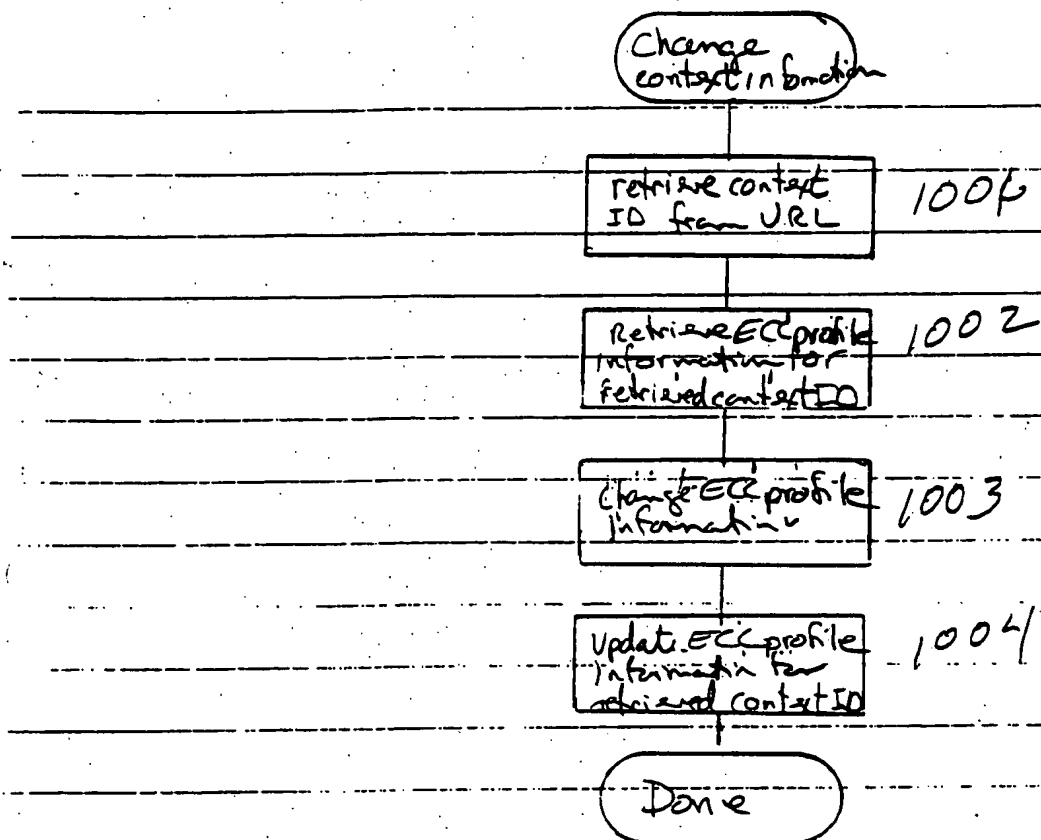 Change
context infomation
retrieve context
ID from URL
1001
Retrieve ECC profile
information for
retrieved context ID
1002
Change ECC profile
information
1003
Update ECC profile
information for
retrieved context ID
1004
Done